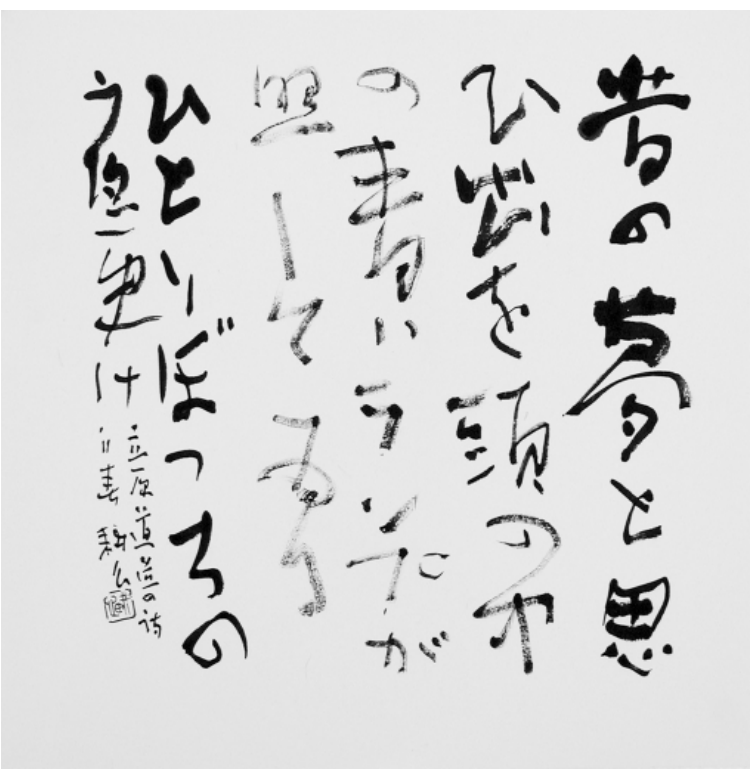 昔の夢と思
ひ出を頭の中
の青いランプが
照してゐる
ひとりぼつちの
夜更け
立原道造の詩